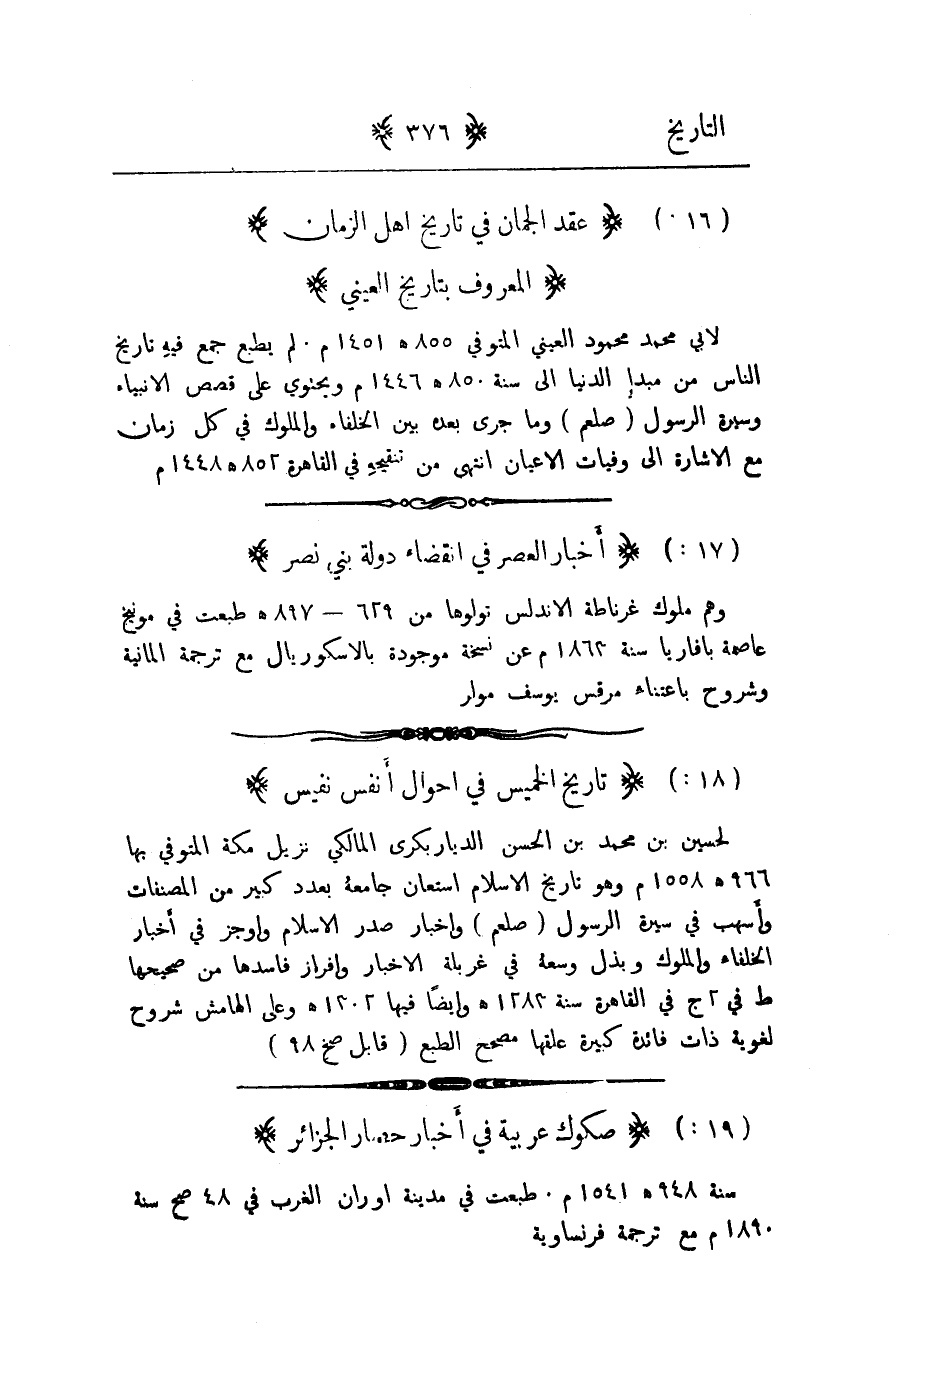 التاريخ ﴿ ٣٧٦ ﴾
(١٦٠) ﴿ عقد الجمان في تاريخ اهل الزمان ﴾
﴿ المعروف بتاريخ العيني ﴾
لابي محمد محمود العيني المتوفي ٨٥٥ ه ١٤٥١ م ٠ لم يطبع جمع فيهِ تاريخ
الناس من مبدإِ الدنيا الى سنة ٨٥٠ ه ١٤٤٦ م ويحتوي على قصص الانبياء
وسيرة الرسول ( صلعم ) وما جرى بعده بين الخلفاء والملوك في كل زمان
مع الاشارة الى وفيات الاعيان انتهى من تنقيحهِ في القاهرة ٨٥٢ ه ١٤٤٨ م
(١٧ :) ﴿ أَخبار العصر في انقضاء دولة بني نصر ﴾
وهم ملوك غرناطة الاندلس تولوها من ٦٢٩ — ٨٩٧ ه طبعت في مونيخ
عاصمة بافاريا سنة ١٨٦٣ م عن نسخة موجودة بالاسكوريال مع ترجمة المانية
وشروح باعتناء مرقس يوسف موار
(١٨ :) ﴿ تاريخ الخميس في احوال أَنفس نفيس ﴾
لحسين بن محمد بن الحسن الدياربكرى المالكي نزيل مكة المتوفي بها
٩٦٦ ه ١٥٥٨ م وهو تاريخ الاسلام استعان جامعهُ بعدد كبير من المصنفات
وأَسهب في سيرة الرسول ( صلعم ) واخبار صدر الاسلام واوجز في أخبار
الخلفاء والملوك وبذل وسعهُ في غربلة الاخبار وافراز فاسدها من صحيحها
ط في ٢ ج في القاهرة سنة ١٢٨٣ ه وايضًا فيها ١٣٠٢ ه وعلى الهامش شروح
لغوية ذات فائدة كبيرة علقها مصحح الطبع ( قابل صح ٩٨ )
(١٩ :) ﴿ صكوك عربية في أَخبار حصار الجزائر ﴾
سنة ٩٤٨ ه ١٥٤١ م ٠ طبعت في مدينة اوران الغرب في ٤٨ صح سنة
١٨٩٠ م مع ترجمة فرنساوية